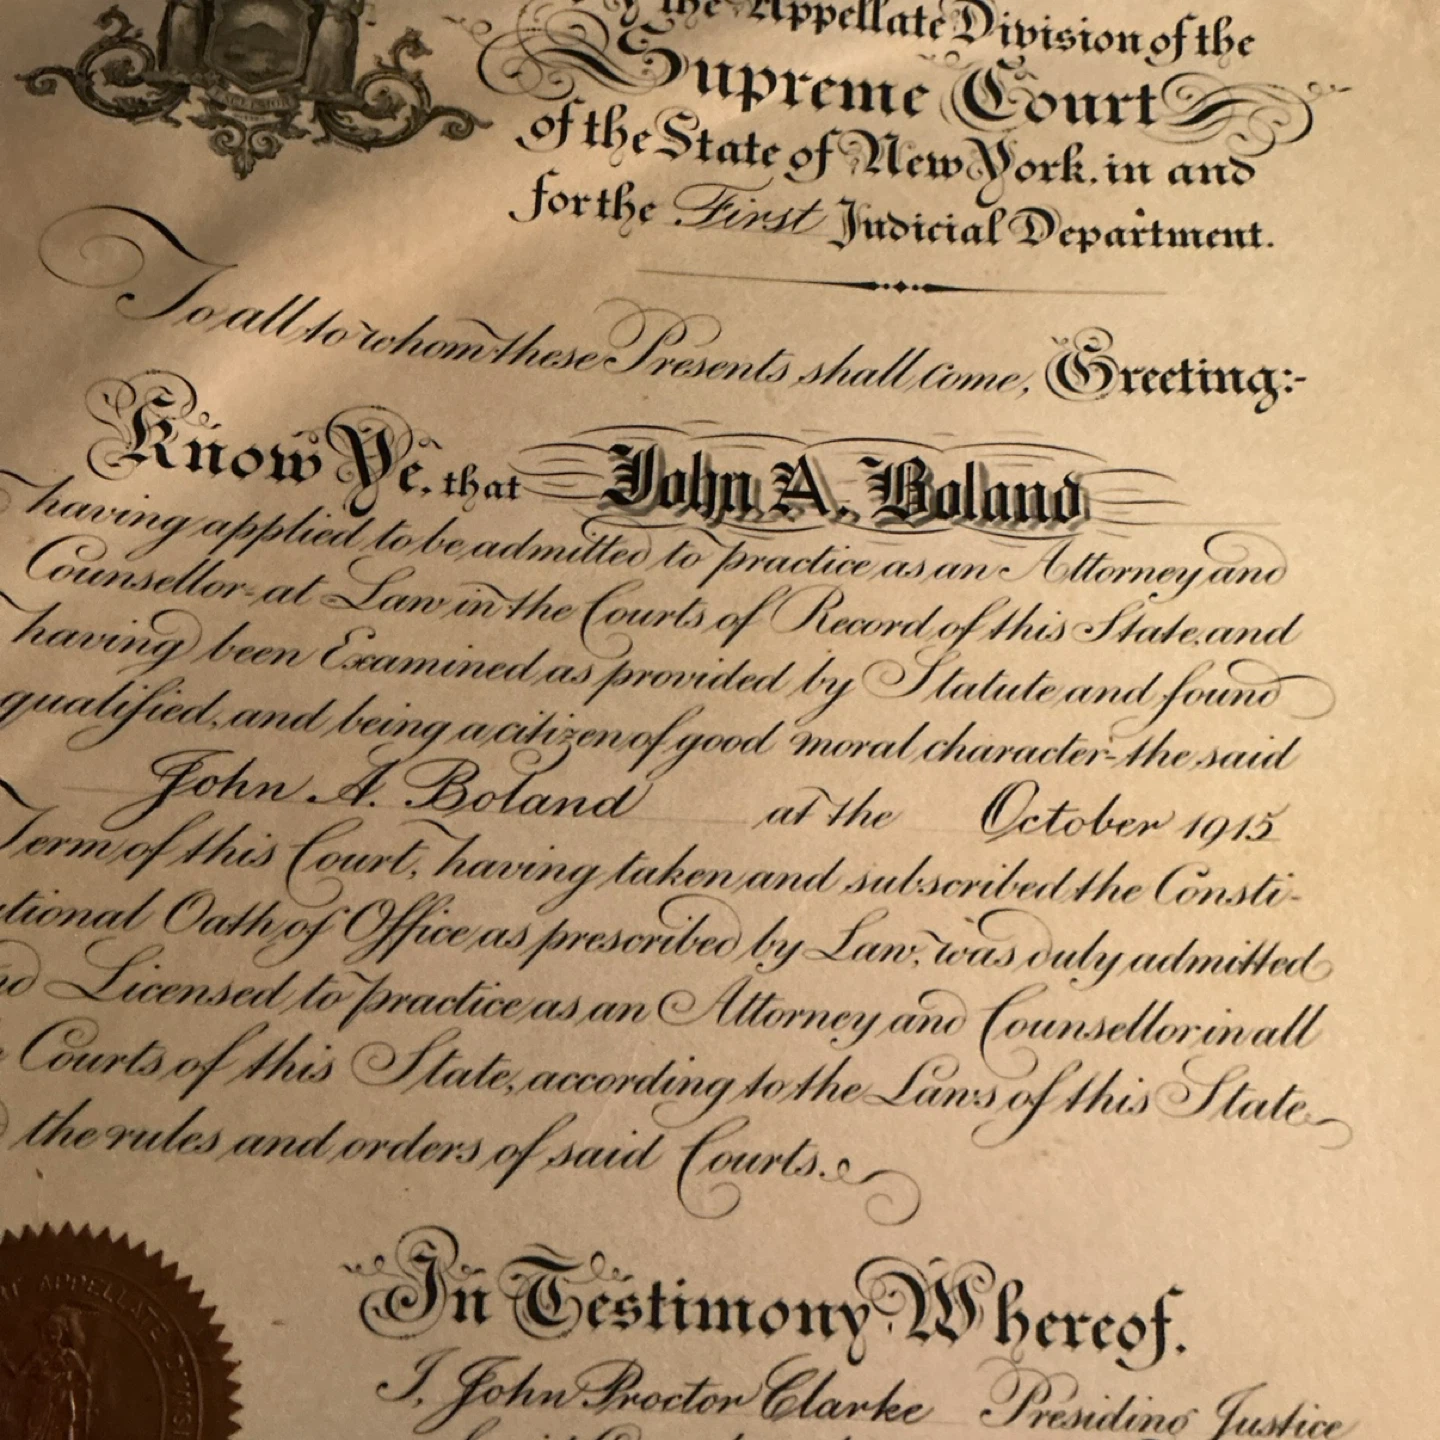 the Appellate Division of the
Supreme Court
of the State of New York, in and
for the First Judicial Department.
EXCELSIOR
To all to whom these Presents shall come, Greeting:-
Know Ye, that John A. Boland
having applied to be admitted to practice as an Attorney and
Counsellor-at Law in the Courts of Record of this State, and
having been Examined as provided by Statute and found
qualified, and being a citizen of good moral character-the said
John A. Boland at the October 1915
Term of this Court, having taken and subscribed the Consti-
tional Oath of Office as prescribed by Law, was duly admitted
Licensed to practice as an Attorney and Counsellor in all
Courts of this State, according to the Laws of this State
the rules and orders of said Courts.
APPELLATE
In Testimony Whereof,
I, John Proctor Clarke Presiding Justice